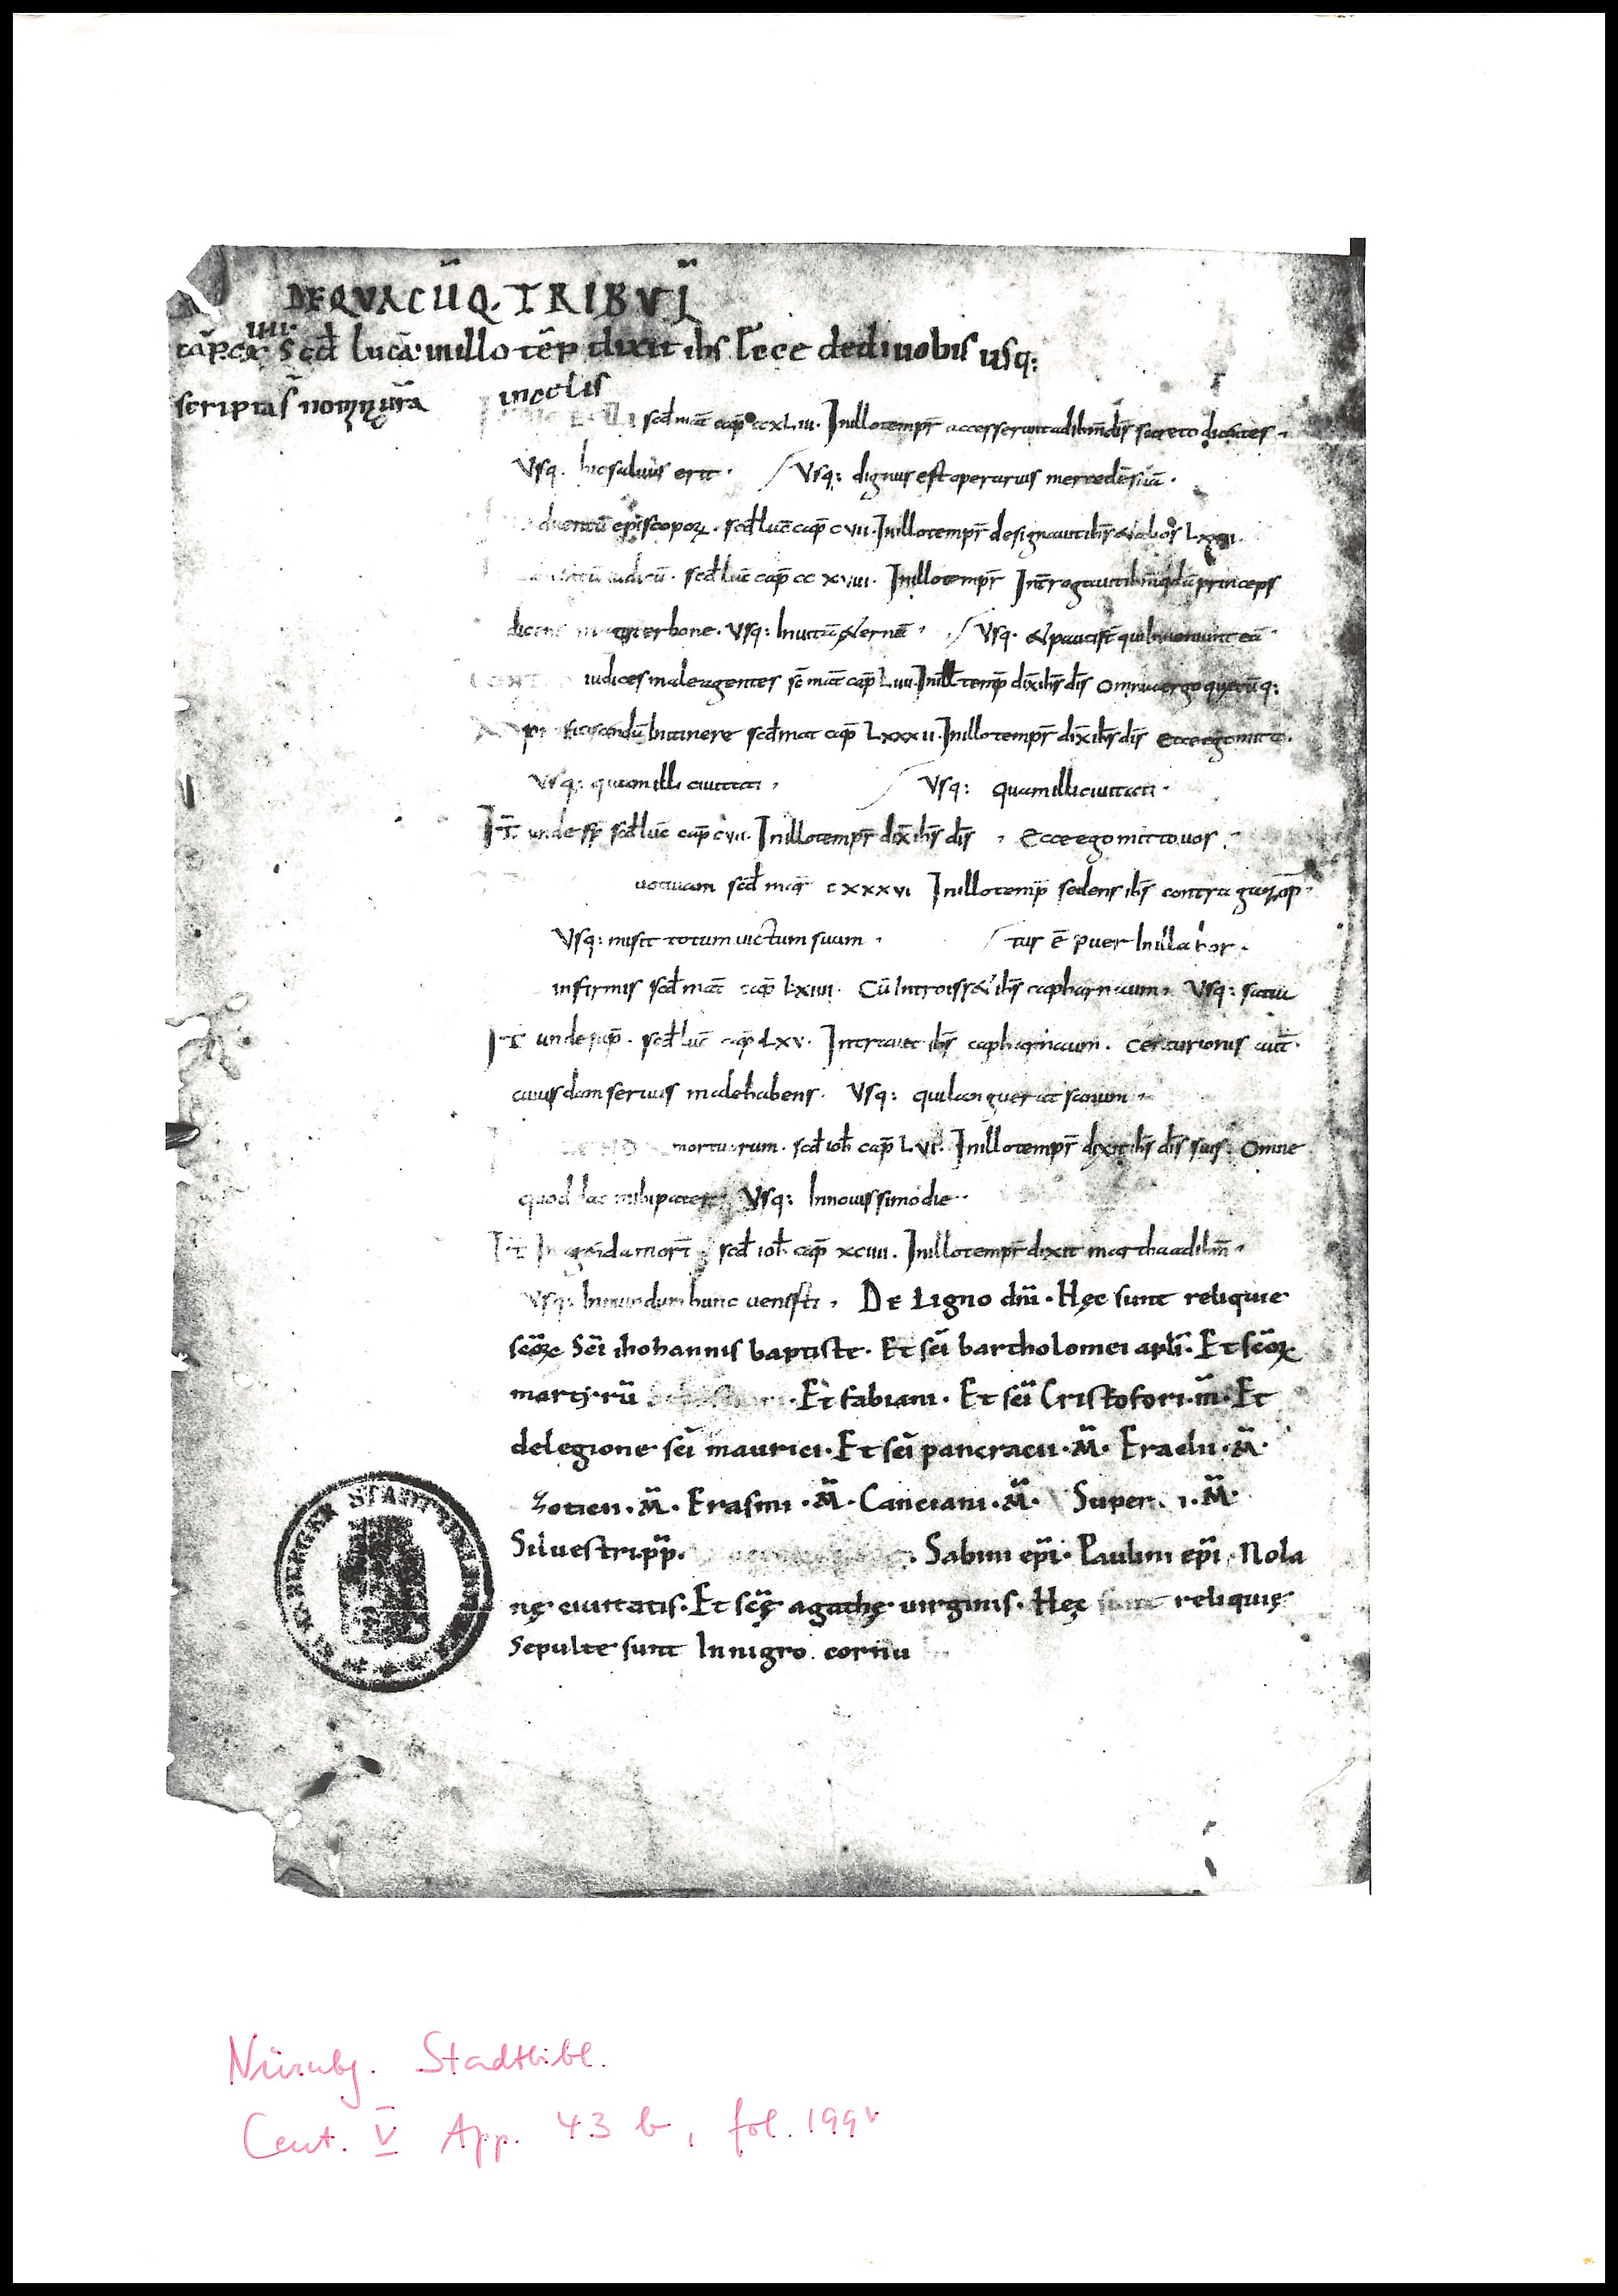 DE QVACŪQ. TRIBVL̄
cāp. cxiiii. Scd̄ lucā. in illo tēp dixit ihs. Ecce dedi uobis usq:
scripta s̄ nom̄ ur̄a in cęlis
scd̄ mat̄ cap̄ ccxLiii. In illo tempr̄ accesserunt ad ihm̄ dis̄ secreto dicentes.
Vsq. hic saluus erit. / Vsq: dignus est operarius mercedē suā.
aduentū epis̄coporꝝ. scd̄ luc̄ cap̄ cvii. In illo tempr̄ designauit ihs̄ & alios Lxxii.
iudicū. scd̄ luc̄ cap̄ cc xviii. In illo tempr̄ Inter̄rogauit ihm̄ qdā princeps
dicens magister bone. Vsq: In uitā &ernā. / Vsq. & pauci s̄t qui Inueniunt eā.
CONT iudices male agentes sc̄ mat̄ cap̄ Luii. In ill̄ temp̄ dix̄ ihs̄ dis̄ Omnia ergo quęcūq:
AD proficiscendū In itinere scd̄ mat cap̄ Lxxxii. In illo tempr̄ dix̄ ihs̄ dis̄ Ecce ego mitto.
Vsq: quam illi ciuitati. / Vsq: quam illi ciuitati.
IT̄ unde sp̄ scd̄ luc̄ cap̄ cvii. In illo tempr̄ dix̄ ihs̄ dis̄. Ecce ego mitto uos.
uotiuam scd̄ mar̄ cxxxvi In illo temp̄ sedens ihs̄ contra gazop̄.
Vsq: misit totum uictum suum. / tus ē puer In illa hor.
infirmis scd̄ mat̄ cap̄ Lxiiii. Cū Introiss& ihs̄ capharnaum. Vsq: sana
IT unde sup̄. scd̄ luc̄ cap̄ Lxv. Intrauit ihs̄ capharnaum. Centurionis aut̄.
cuiusdam seruus male habens. Vsq: qui languerat sanum.
mortuorum. scd̄ ioh̄ cap̄ Lvi. In illo tempr̄ dixit ihs̄ dis̄ suis. Omne
quod dat mihi pater. Vsq: In nouissimo die.
scd̄ ioh̄ cap̄ xciiii. In illo tempr̄ dixit martha ad ihm̄.
Vsq: In mundum hunc uenisti. De Ligno dn̄i. Hęc sunt reliquie
scōrꝝ Sc̄i ihohannis baptiste. Et sc̄i bartholomei apli. Et scōrꝝ
martyrū . Et fabiani. Et sc̄i Cristofori. m̄. Et
de legione sc̄i maurici. Et sc̄i pancracii. M̄. Eraclii. M̄.
Zotici. M̄. Erasmi. M̄. Canciani. M̄. Super i. M̄.
Siluestri. pp̄. . Sabini ep̄i. Paulini ep̄i. Nola
nę ciuitatis. Et scę̄ agathę uirginis. Hęc sunt reliquię
Sepulte sunt In nigro cornu
Nürnbg. Stadtbibl.
Cent. V App. 43 b, fol. 199v